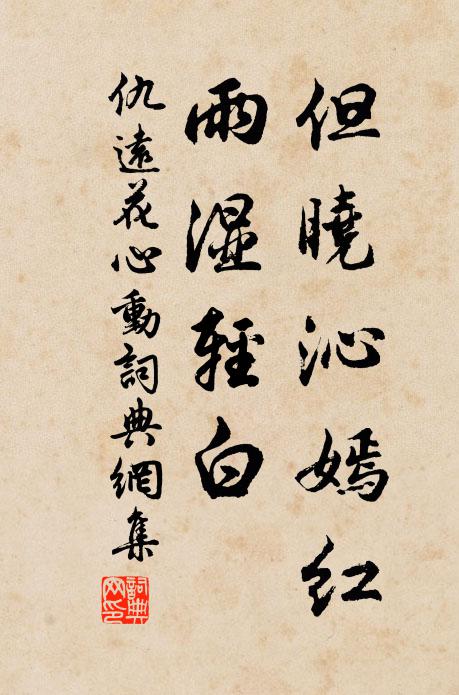 但曉沁嫣紅
雨湿輕白
仇遠花心動詞典網集
詞典
网印